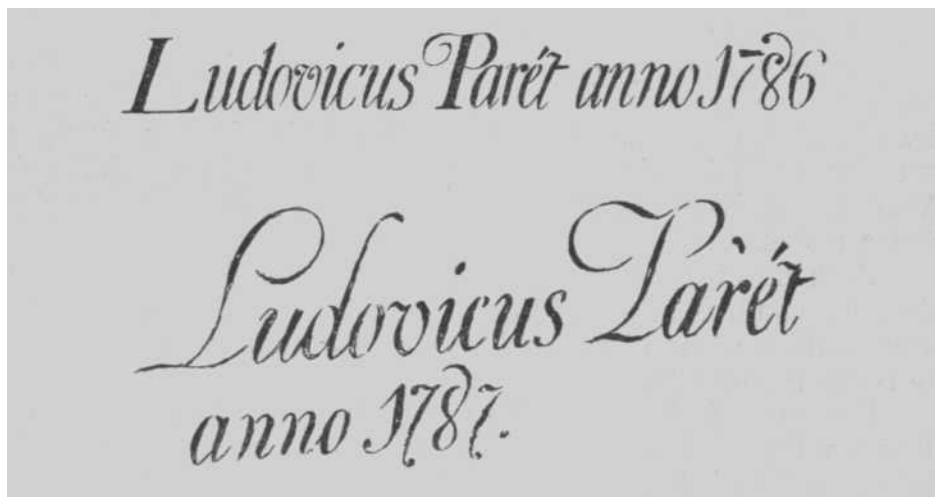 Ludovicus Parét anno 1786
Ludovicus Pàrét
anno 1787.